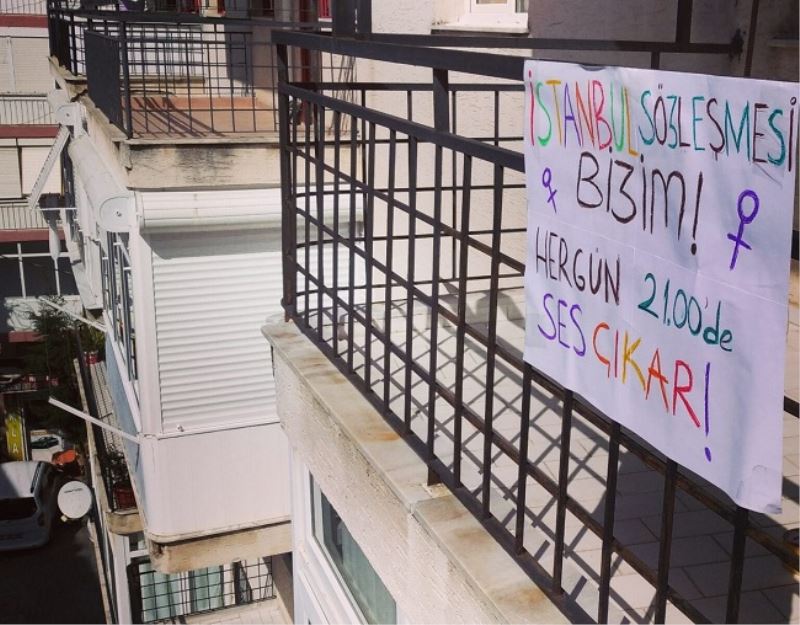 İSTANBUL SÖZLEŞMESİ
BİZİM!
HERGÜN 21.00'de
SES ÇIKAR!